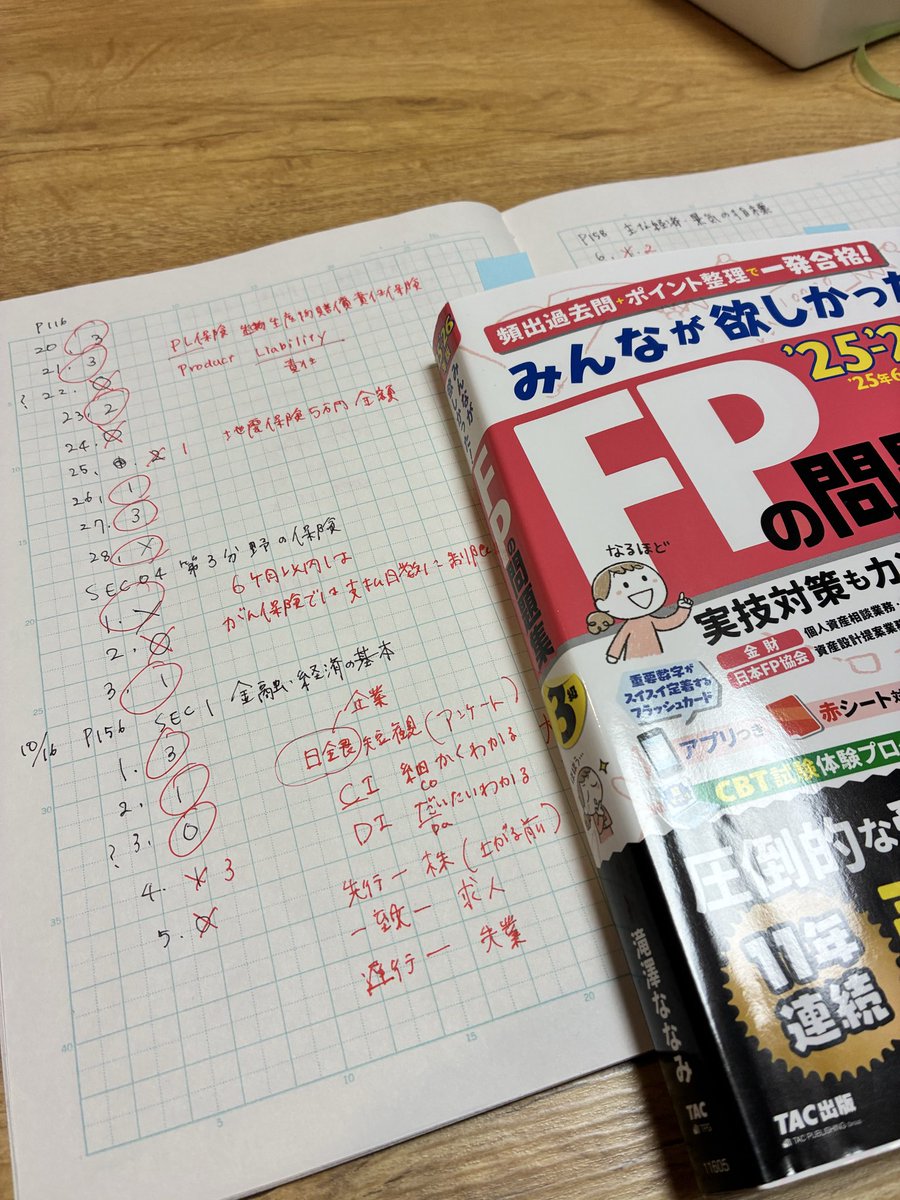 P116
20 3
21. 3
? 22.
23. 2
24.
25. 1
26. 1
27. 3
28. ×
PL保険 生産物賠償責任保険
Product Liability
責任
地震保険5万円 全額
SEC04 第3分野の保険
1. ×
6ヶ月以内は
がん保険では支払日数に制限
2.
3. 1
10/16 P156 SEC1 金融・経済の基本
1. 3
2. 1
? 3. ○
4. × 3
5.
企業
日銀短観(アンケート)
CI 細かくわかる
co
DI だいたいわかる
Da
先行ー 株(上がる前に)
一致ー 求人
遅行ー 失業
P158 主な経済・景気の指標
6. × 2
頻出過去問+ポイント整理で一発合格!
みんなが欲しかった
'25-'2
'25年6
FPの問題
なるほど
実技対策も
金財 個人資産相談業務・
日本FP協会 資産設計提案業務
重要数字が
スイスイ定着する
フラッシュカード
アプリつき
赤シート対
CBT試験体験プロ
圧倒的な
11年
連続
TAC出版
TAC PUBLISHING Group
FPの問題集
3級
滝澤ななみ
TAC出版
11605
5
10
15
20
30
35
40